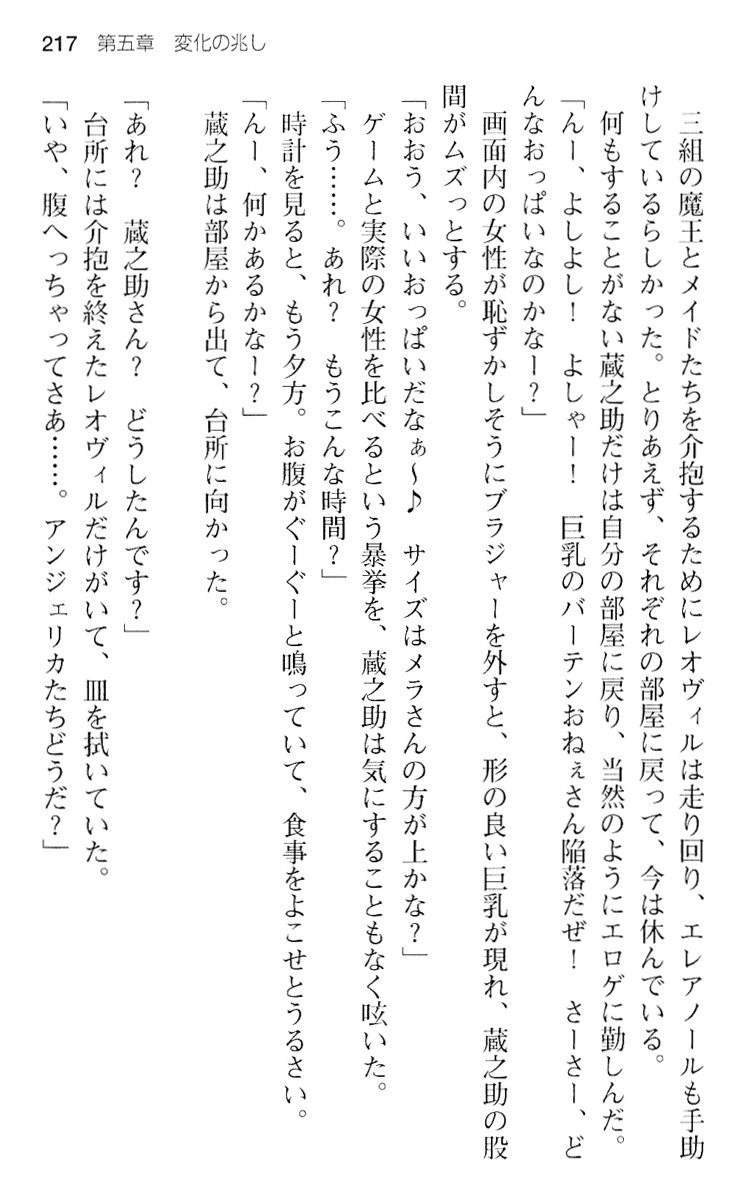 217　第五章　変化の兆し
　三組の魔王とメイドたちを介抱するためにレオヴィルは走り回り、エレアノールも手助
けしているらしかった。とりあえず、それぞれの部屋に戻って、今は休んでいる。
　何もすることがない蔵之助だけは自分の部屋に戻り、当然のようにエロゲに勤しんだ。
「んー、よしよし！　よしゃー！　巨乳のバーテンおねぇさん陥落だぜ！　さーさー、ど
んなおっぱいなのかなー？」
　画面内の女性が恥ずかしそうにブラジャーを外すと、形の良い巨乳が現れ、蔵之助の股
間がムズっとする。
「おおう、いいおっぱいだなぁ～♪　サイズはメラさんの方が上かな？」
　ゲームと実際の女性を比べるという暴挙を、蔵之助は気にすることもなく呟いた。
「ふう……。あれ？　もうこんな時間？」
　時計を見ると、もう夕方。お腹がぐーぐーと鳴っていて、食事をよこせとうるさい。
「んー、何かあるかなー？」
　蔵之助は部屋から出て、台所に向かった。
「あれ？　蔵之助さん？　どうしたんです？」
　台所には介抱を終えたレオヴィルだけがいて、皿を拭いていた。
「いや、腹へっちゃってさあ……。アンジェリカたちどうだ？」